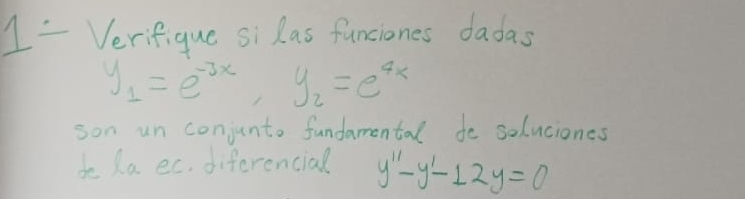 1- Verifique si las funciones dadas
y₁ = e⁻³ˣ, y₂ = e⁴ˣ
son un conjunto fundamental de soluciones
de la ec. diferencial y''-y'-12y=0